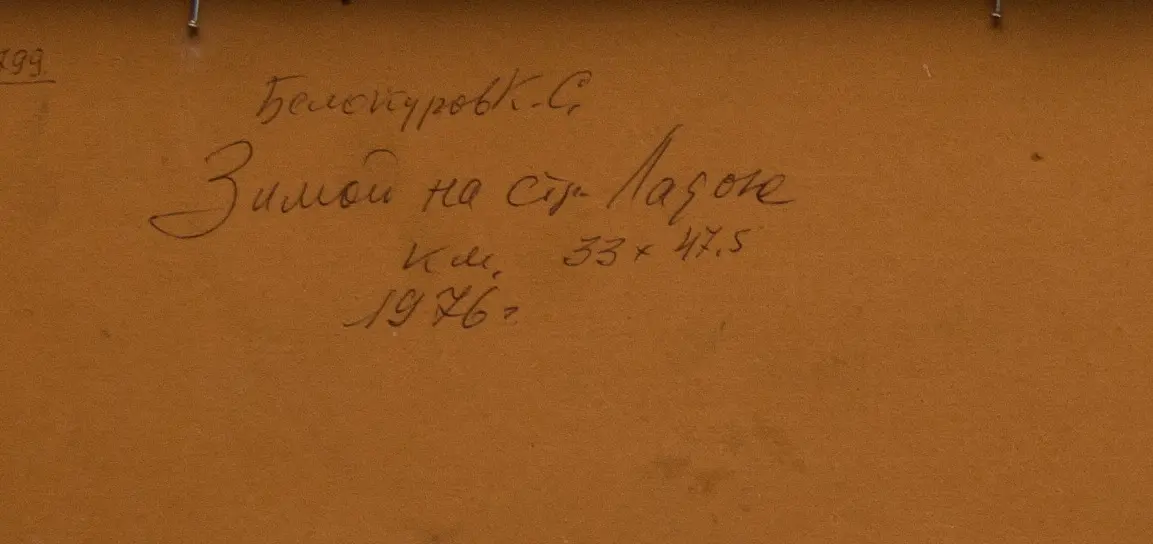 799
Белокуров К. С.
Зимой на стр. Ладоге
К м. 33 x 47.5
1976 г